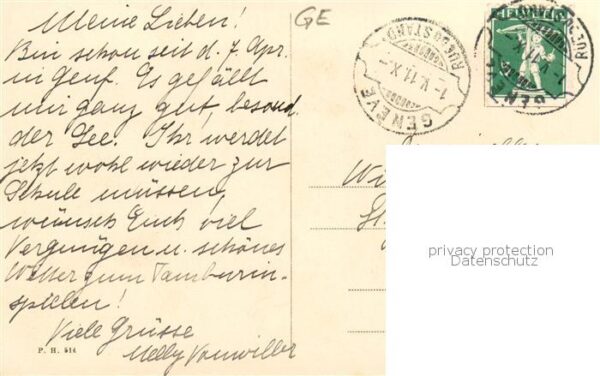 Meine Lieben!
Bin schon seit d. 7 Apr.
in Genf. Es gefällt
mir ganz gut, besond.
der See. Ihr werdet
jetzt wohl wieder zur
Schule müssen,
wünsch Euch viel
Vergnügen u. schönes
Wetter zum Tamburin-
spielen!
Viele Grüsse
Nelly Vonwiller
P. H. 514
GE
GENEVE
RUE DU STAND
1-V.11.X-
GENEVE
RUE DU STAND
privacy protection
Datenschutz